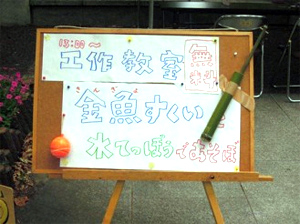 13:00～
工作教室 無料
きんぎょ
金魚すくい
水てっぽうであそぼ